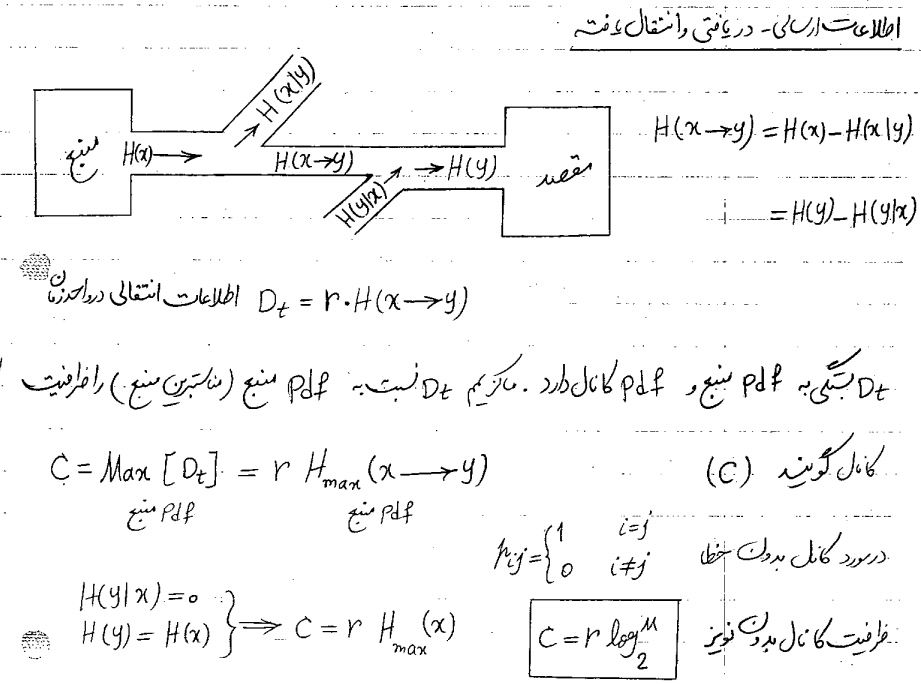 اطلاعات ارسالی - دریافتی و انتقال یافته
H(x|y)
منبع H(x) → H(x→y) → H(y) مقصد
H(y|x)
H(x→y) = H(x) - H(x|y)
= H(y) - H(y|x)
اطلاعات انتقالی در واحد زمان D_t = r·H(x→y)
D_t بستگی به pdf منبع و pdf کانال دارد. ماکزیمم D_t نسبت به pdf منبع (مناسبترین منبع) را ظرفیت
کانال گویند (C)
C = Max [D_t] = r H_max (x→y)
pdf منبع pdf منبع
در مورد کانال بدون خطا p_ij = { 1 i=j
0 i≠j
H(y|x) = 0
H(y) = H(x) } ⇒ C = r H_max (x)
ظرفیت کانال بدون نویز C = r log_2^M